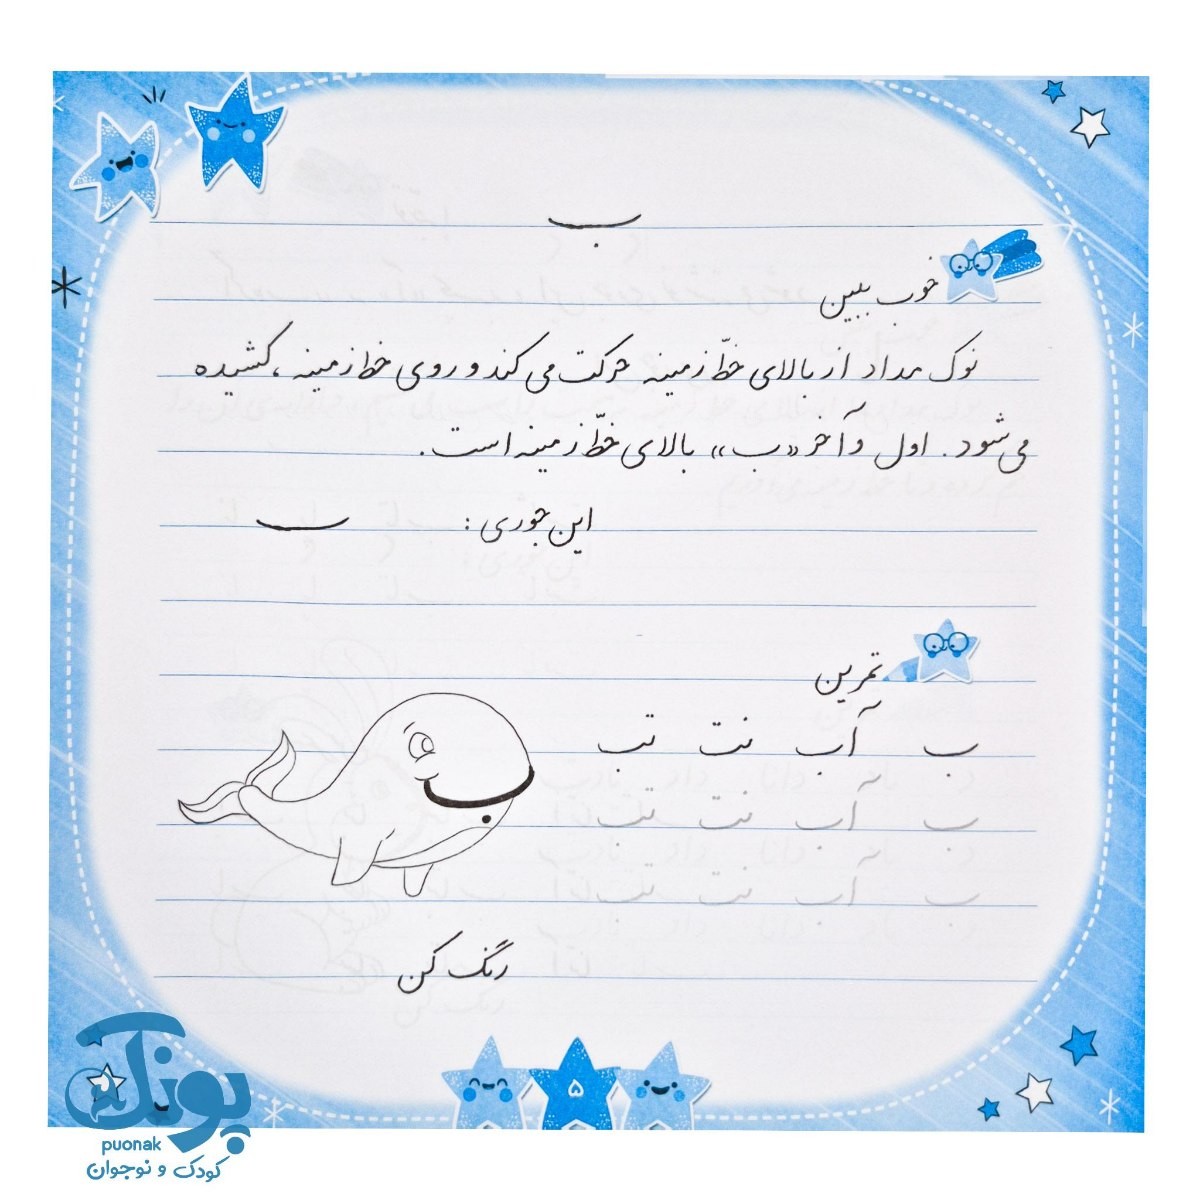 ب
خوب ببین
نوک مداد از بالای خطّ زمینه حرکت می‌کند و روی خط زمینه، کشیده
می‌شود. اول و آخر «ب» بالای خطّ زمینه است.
این جوری :
تمرین
ب آب نت تب
ب آب نت تب
ب آب نت تب
ب
رنگ کن
۵
پونک
puonak
کودک و نوجوان